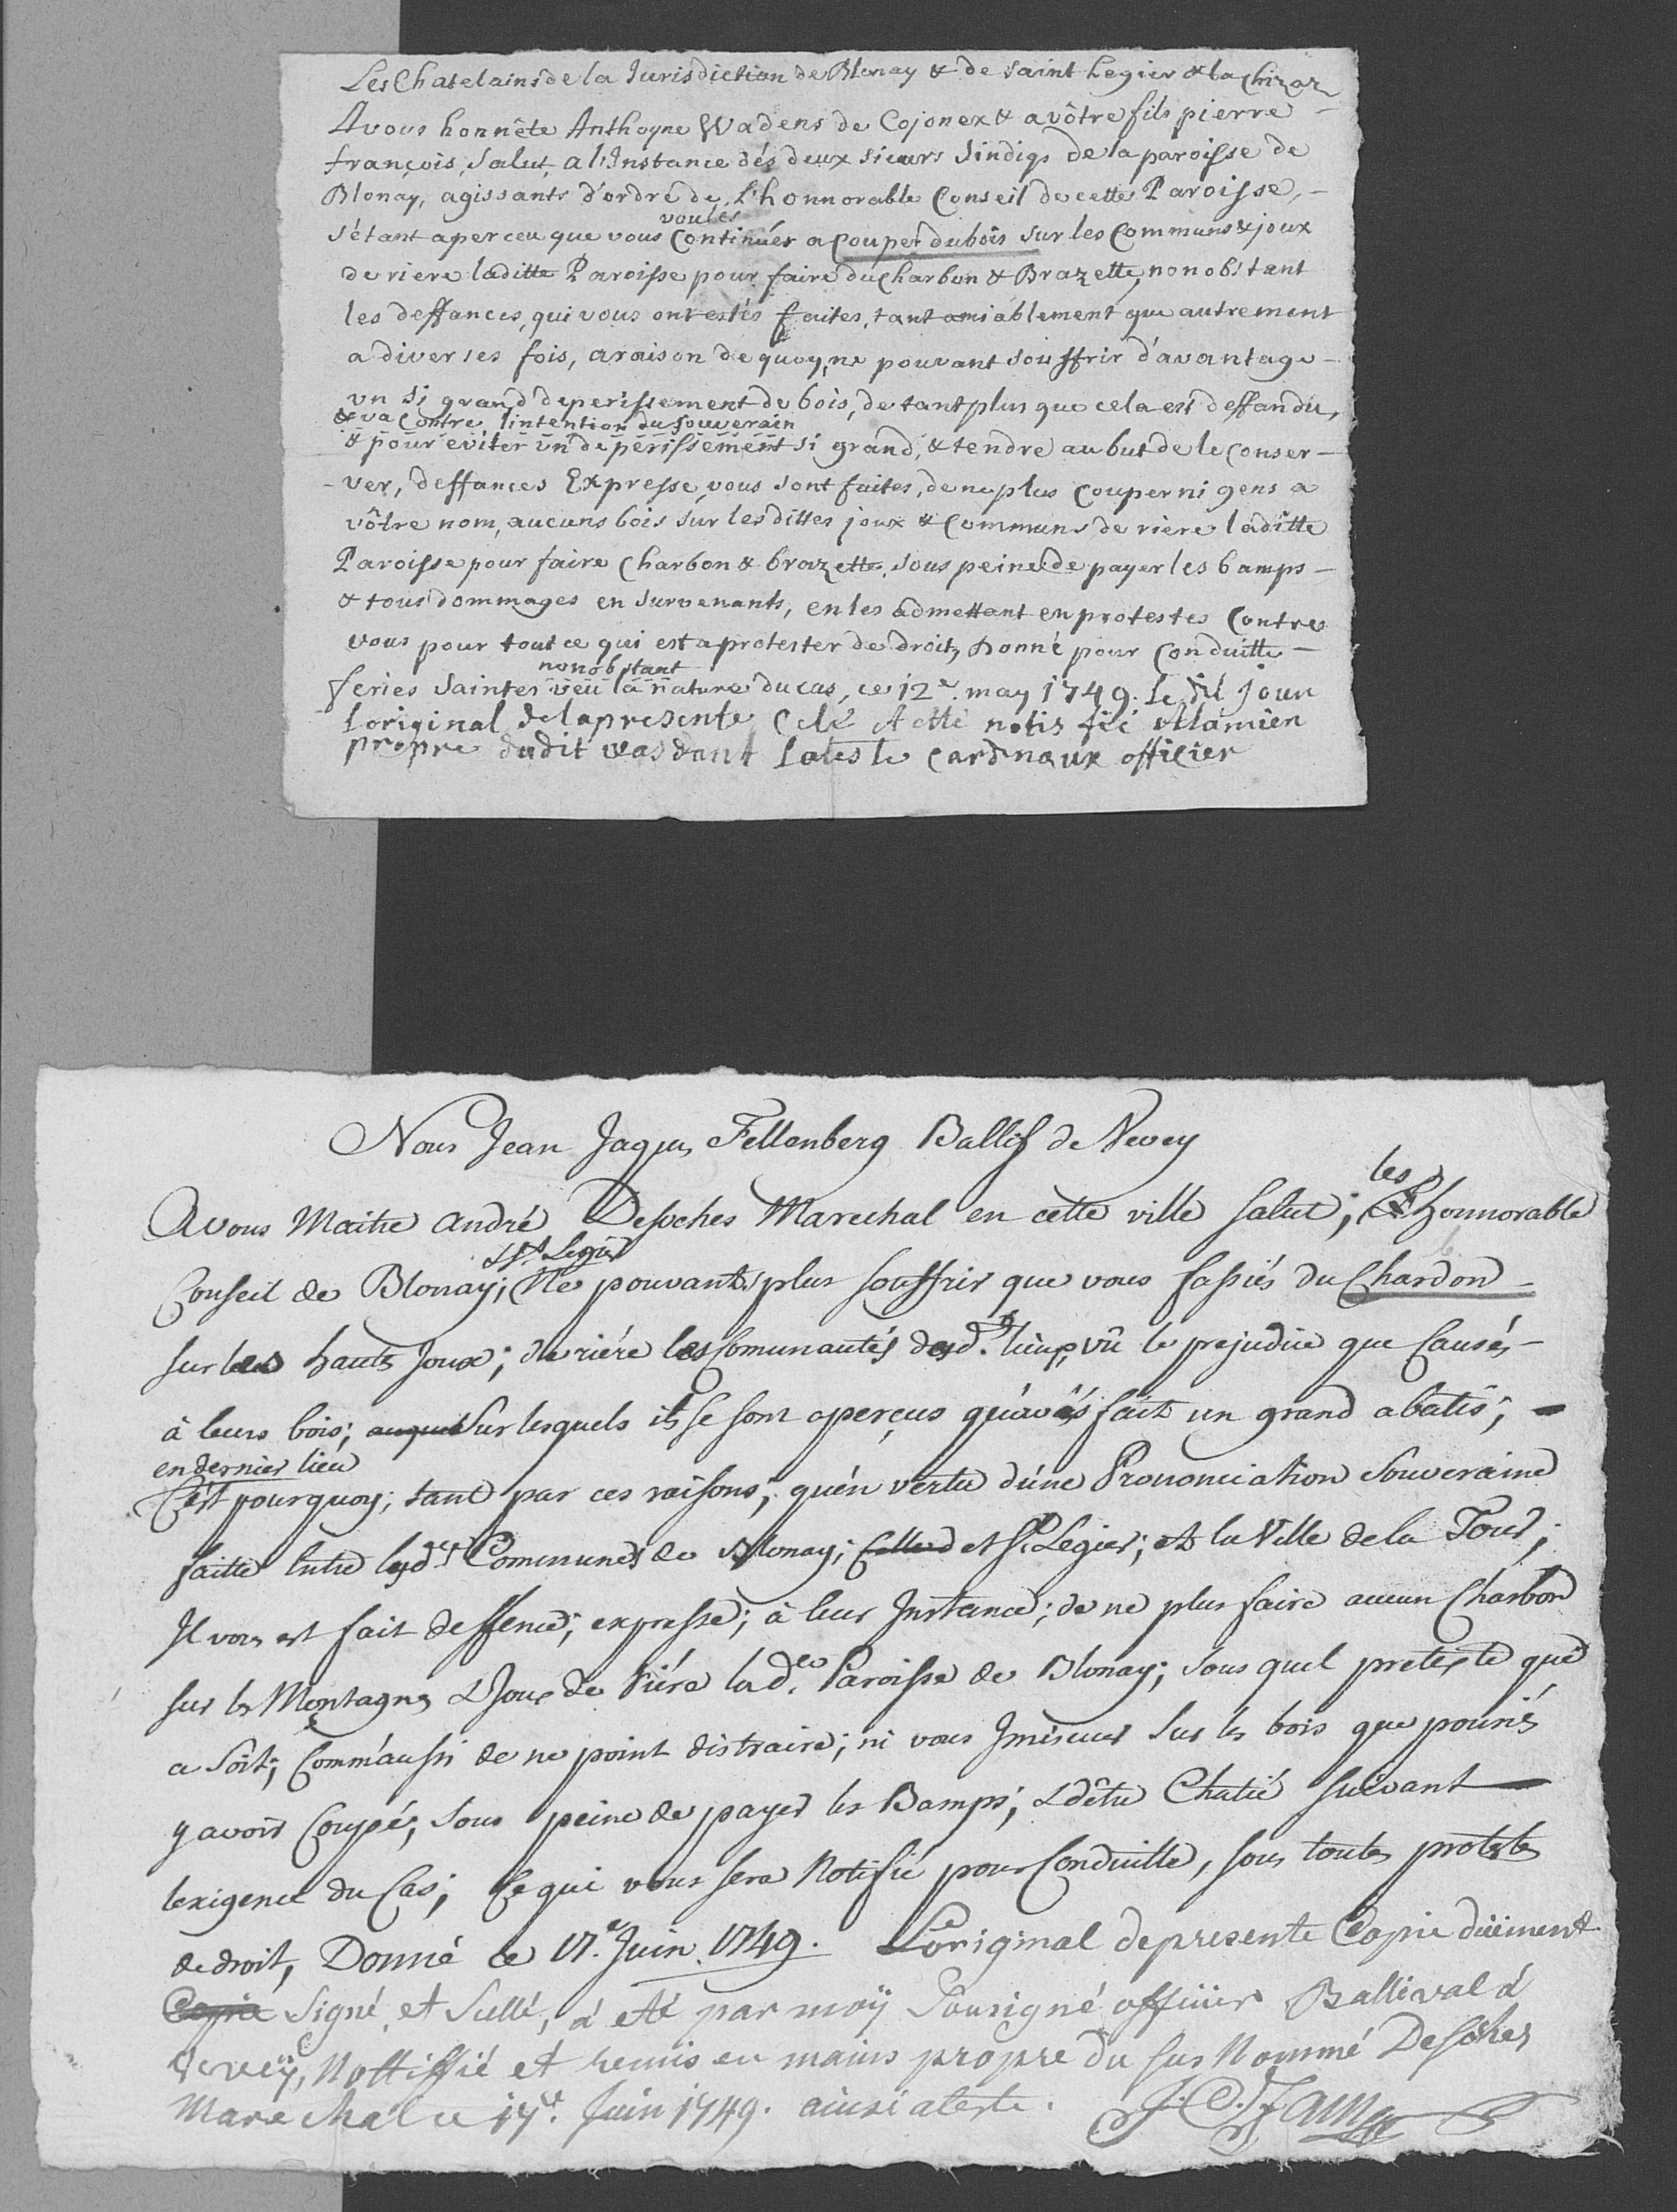 Les Chatelains de la Jurisdiction de Blonay & de Saint Legier & la Chizaz
A vous honnête Anthoyne Wadens de Cojonex & a vôtre fils pierre
françois, Salut, a l'Instance dés deux sieurs Sindiqs de la paroisse de
Blonay, agissants d'ordre de L'honnorable Conseil de cette Paroisse,
voules
s'étant aperceu que vous Continuér a Couper du bois Sur les Communs & joux
de riere laditte Paroisse pour faire du Charbon & Brazette, nonobstant
les deffances, qui vous ont estés faites, tant amiablement que autrement
a diverses fois, a raison de quoy, ne pouvant Souffrir d'avantage
un Si grand deperissement de bois, de tant plus que cela est deffandu,
& va Contre l'intention du Souverain
& pour eviter un deperissement Si grand, & tendre au but de le Conser-
-ver, deffances Expresse, vous Sont faites, de ne plus Couper ni gens a
vôtre nom, aucuns bois Sur les dittes joux & Communs de riere laditte
Paroisse pour faire Charbon & brazette, Sous peine de payer les bamps
& tous dommages en Survenants, en les admettant en protestes Contre
vous pour tout ce qui est a protester de droit, Donné pour Conduitte
nonobstant
feries Saintes veu la nature du cas, ce 12e. may 1749. Le dit Jour
loriginal de la presente Celé A etté notis fié Alamien
propre dudit vasdant lateste Cardinaux officier
Nous Jean Jaques Fellenberg Ballif de Vevey
les
A vous Maitre André Desoches Marechal en cette ville Salut; L'honnorable
St. Legier
Conseil de Blonay; Ne pouvants plus Souffrir que vous fassiés du Chardon
sur les hauts Joux; de riére les Comunautés desd. lieux, vû le prejudice que Causés
à leurs bois; auquel Sur lesquels ils se sont aperçus qu'avés fait un grand abatis;
en dernier lieu
C'est pourquoy; tant par ces raisons, qu'en vertu d'une Prononciation Souveraine
faitte Entre lesd.es Communes de Blonay; Celle d et St. Legier; et la Ville de la Tour;
Il vous est fait deffence; expresse; à leur Instance; de ne plus faire aucun Charbon
sur les Montagnes & Joux de Riére lad.e Paroisse de Blonay; Sous quel pretexte que
ce Soit; Comm'aussi de ne point distraire; ni vous Imiscuer Sur les bois que pouriés
y avoir Coupé; Sous peine de payer les Bamps; & d'être Chatié Suivant
lexigence du Cas; Ce qui vous sera Notifié pour Conduitte, sous toutes protestes
de droit, Donné ce 17.e Juin 1749. L'original de presente Copie düement
Copie Signé et Sellé, à eté par moÿ Sousigné officier Ballival à
Vevëy, Nottiffié et remis en mains propre du sus Nommé Desoches
Marechal ce 17e. Juin 1749. ainsi ateste.